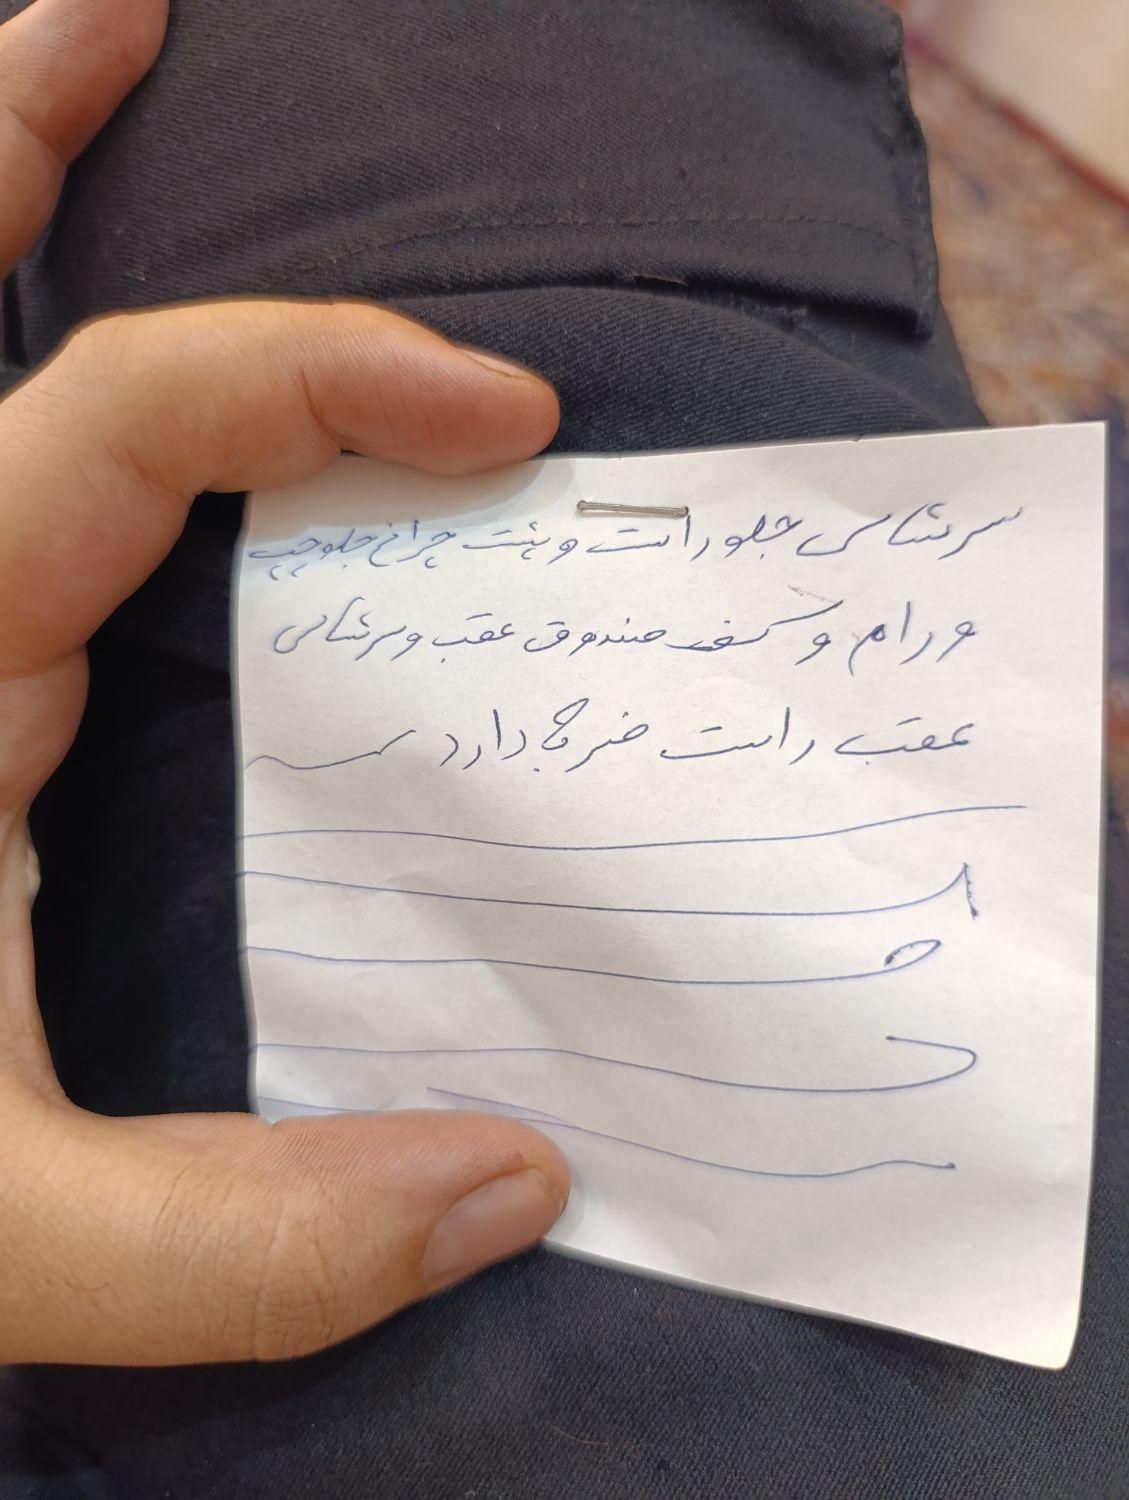 سرشاسی جلو راست و پشت چراغ جلو چپ
و رام و کف صندوق عقب و سرشاسی
عقب راست ضربه دارد